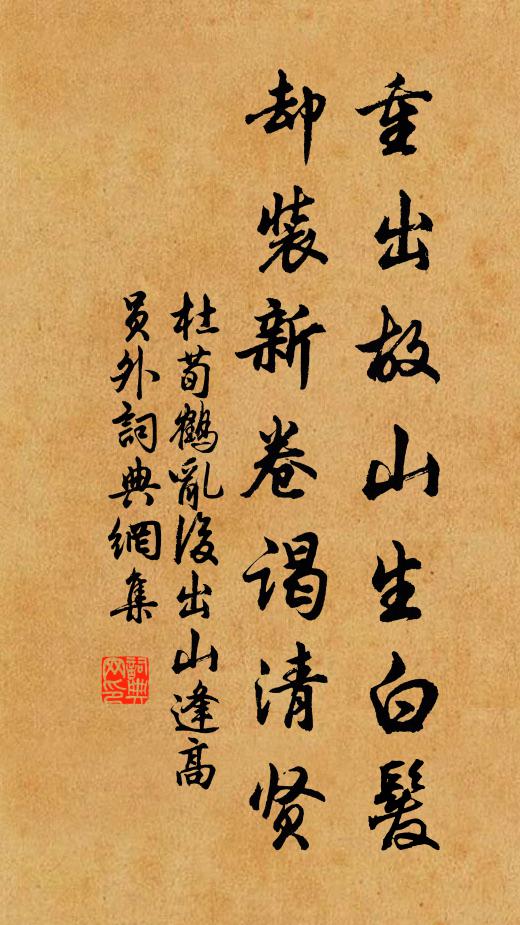 重出故山生白髮
却装新卷谒清贤
杜荀鶴亂後出山逢高
員外詞典網集
詞典网印